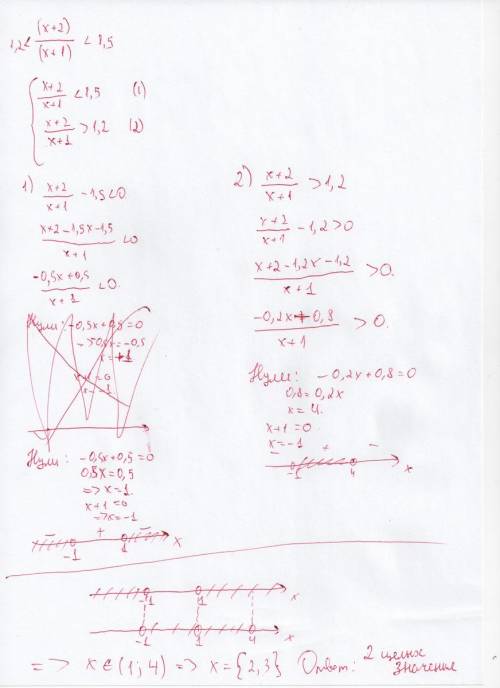 1,2 < (x+2)/(x+1) < 1,5
{ x+2/x+1 < 1,5 (1)
x+2/x+1 > 1,2 (2)
1) x+2/x+1 - 1,5 < 0
x+2-1,5x-1,5/x+1 < 0
-0,5x+0,5/x+1 < 0.
Нули: -0,5x+0,5=0
x=1
x+1=0
x=-1
Нули: -0,5x+0,5=0
0,5x=0,5
=> x=1.
x+1=0
=> x=-1
- + -
-1 1 x
2) x+2/x+1 > 1,2
x+2/x+1 - 1,2 > 0
x+2-1,2x-1,2/x+1 > 0.
-0,2x+0,8/x+1 > 0.
Нули: -0,2x+0,8=0
0,8=0,2x
x=4.
x+1=0
x=-1
- + -
-1 4 x
-1 1 x
-1 1 4 x
=> x∈(1;4) => x={2,3} Ответ: 2 целых
значения